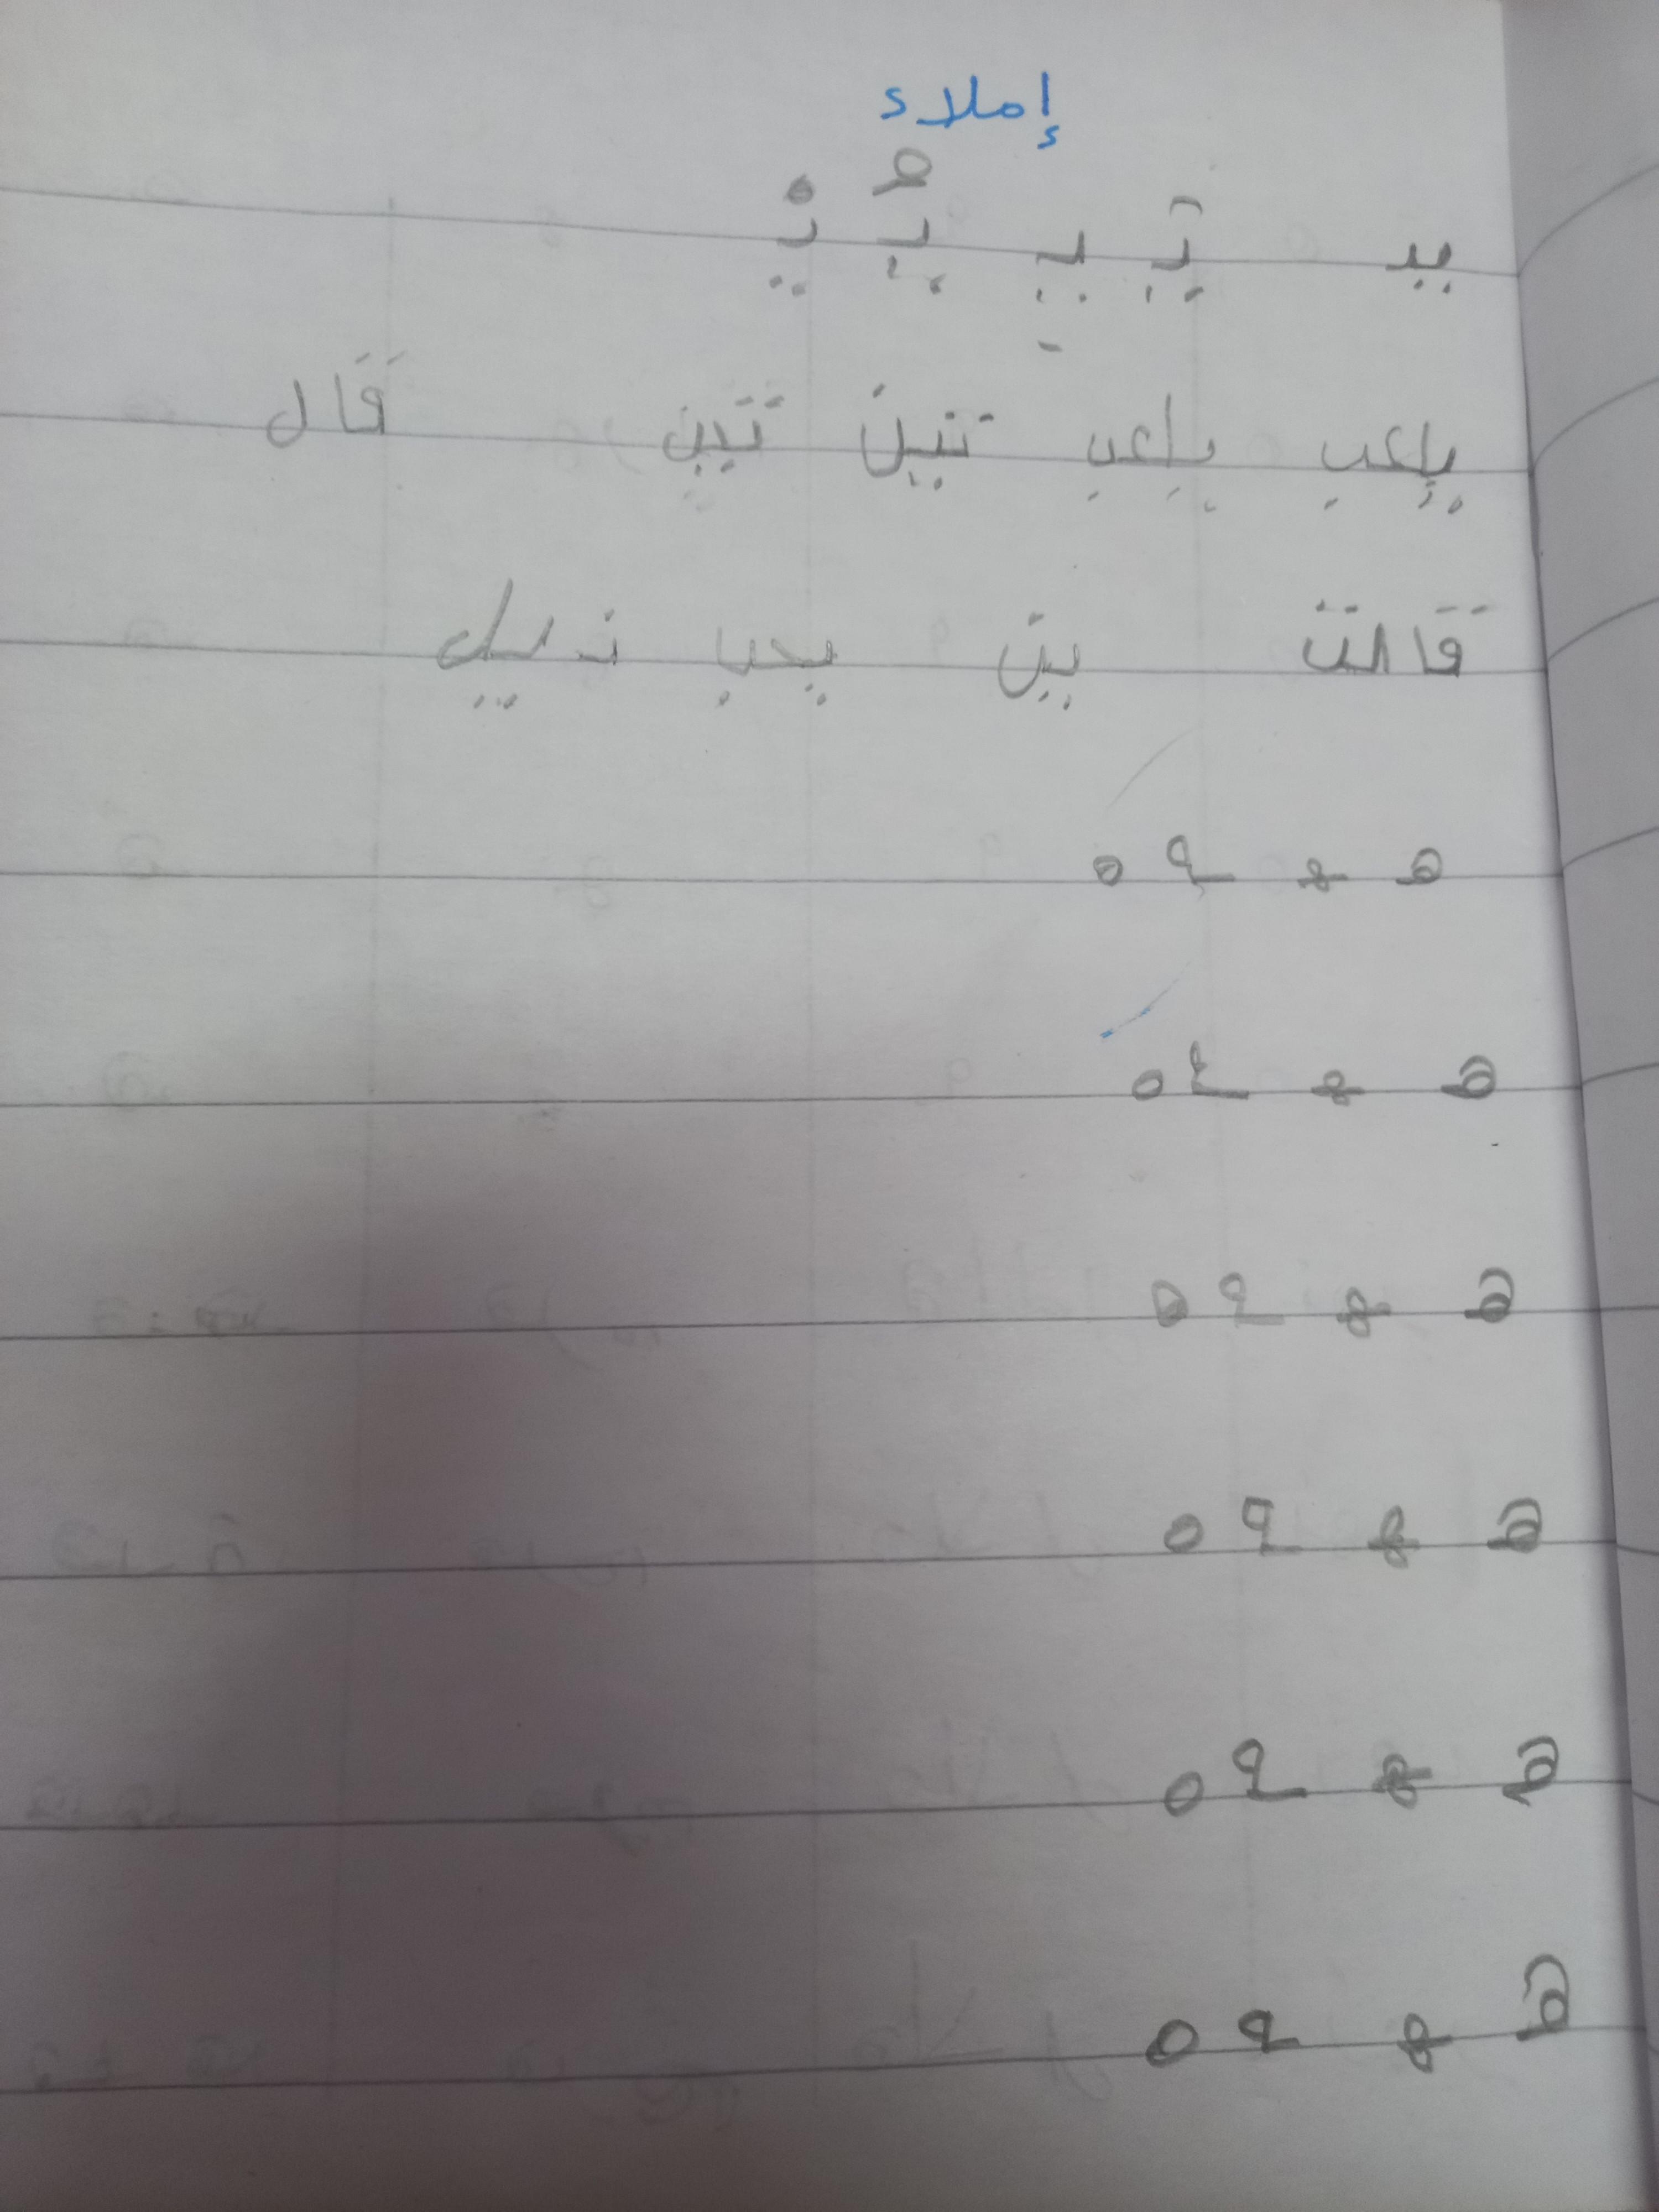 إملاء
يد يَـ يِـ يُـ يْـ
يلعب يلعب تنين تين قَال
قَالت بين يحب نديل
هـ ـهـ ـه ه
هـ ـهـ ـه ه
هـ ـهـ ـه ه
هـ ـهـ ـه ه
هـ ـهـ ـه ه
هـ ـهـ ـه ه